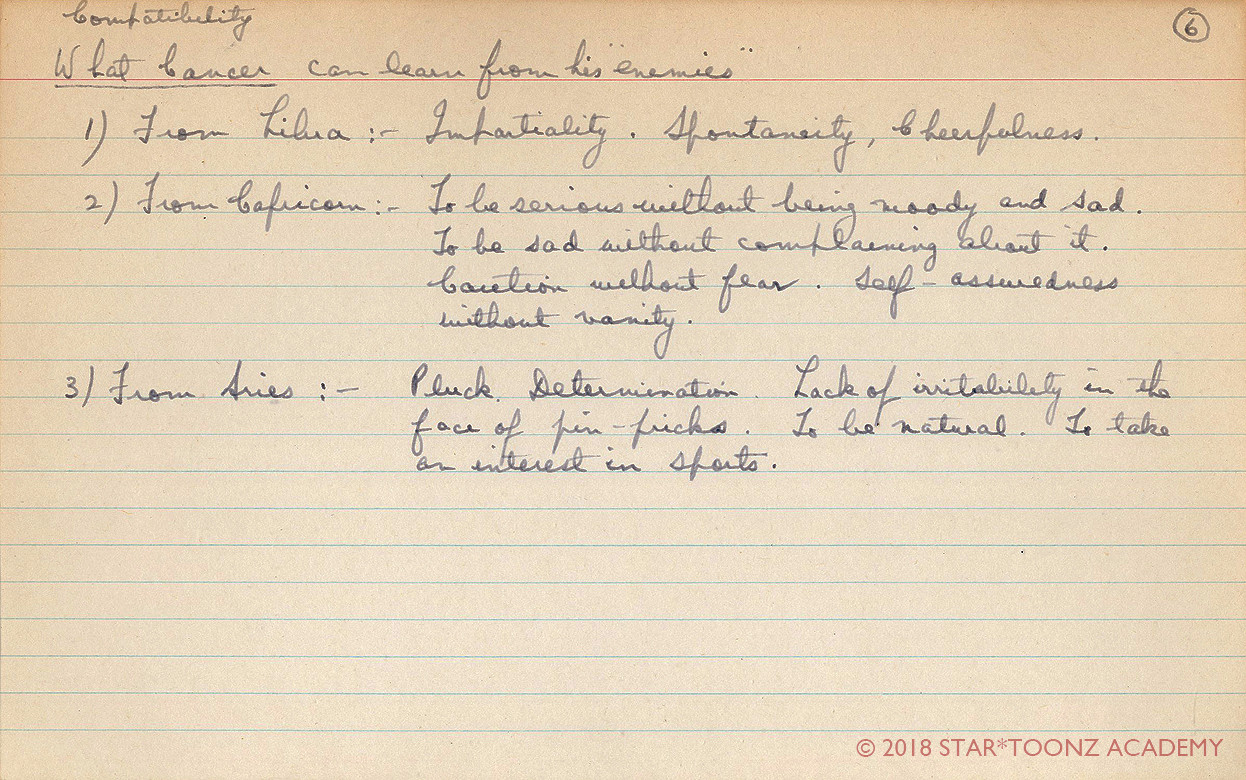 Compatibility
6
What Cancer can learn from his "enemies"
1) From Libra :- Impartiality. Spontaneity, Cheerfulness.
2) From Capricorn :- To be serious without being moody and sad.
To be sad without complaining about it.
Caution without fear. Self-assuredness
without vanity.
3) From Aries :- Pluck. Determination. Lack of irritability in the
face of pin-pricks. To be natural. To take
an interest in sports.
© 2018 STAR*TOONZ ACADEMY